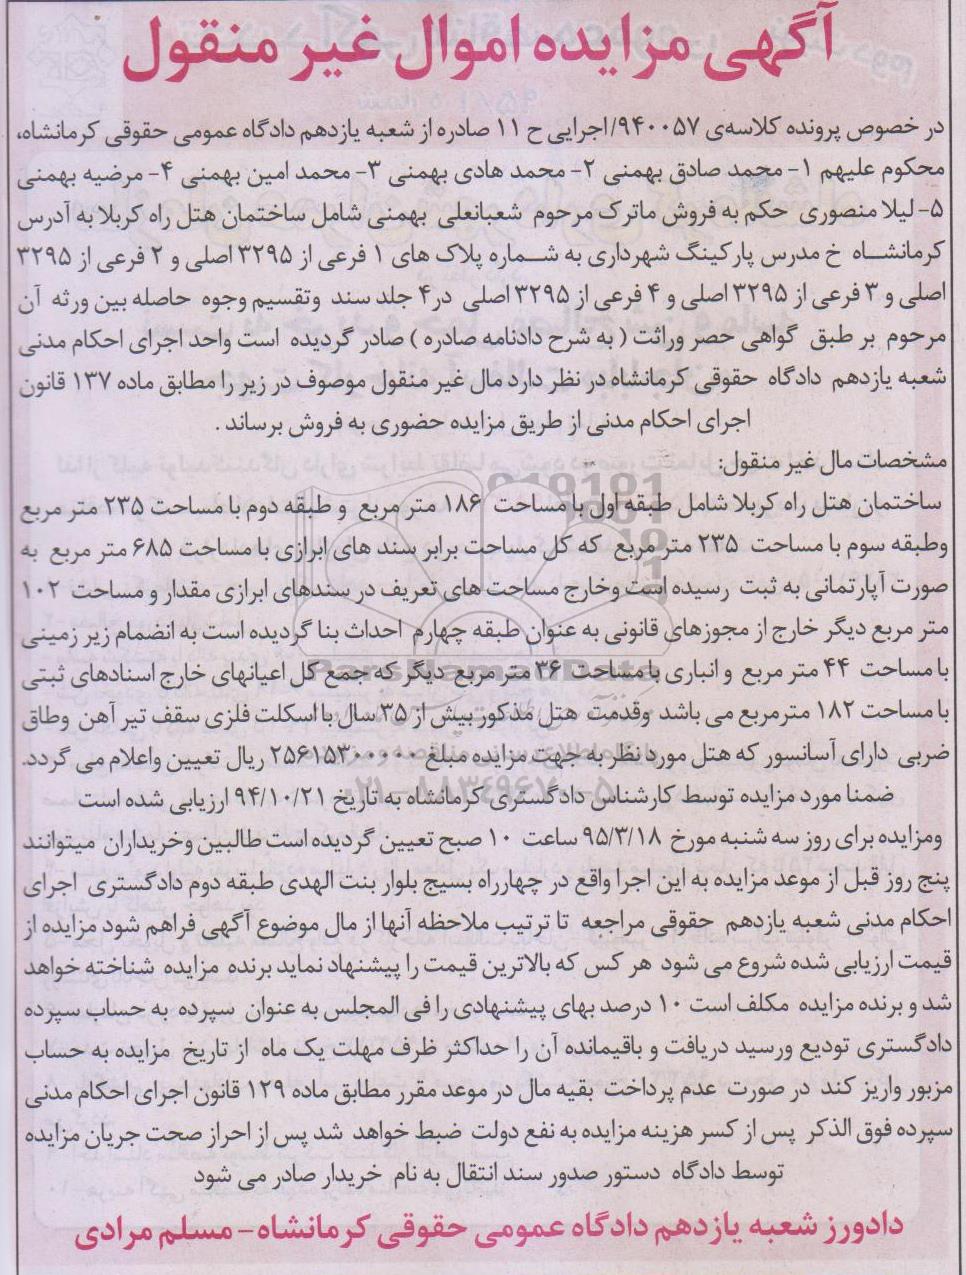 آگهی مزایده اموال غیر منقول
در خصوص پرونده کلاسه‌ی ۹۴۰۰۵۷/اجرایی ح ۱۱ صادره از شعبه یازدهم دادگاه عمومی حقوقی کرمانشاه،
محکوم علیهم ۱- محمد صادق بهمنی ۲- محمد هادی بهمنی ۳- محمد امین بهمنی ۴- مرضیه بهمنی
۵- لیلا منصوری حکم به فروش ماترک مرحوم شعبانعلی بهمنی شامل ساختمان هتل راه کربلا به آدرس
کرمانشاه خ مدرس پارکینگ شهرداری به شماره پلاک های ۱ فرعی از ۳۲۹۵ اصلی و ۲ فرعی از ۳۲۹۵
اصلی و ۳ فرعی از ۳۲۹۵ اصلی و ۴ فرعی از ۳۲۹۵ اصلی در۴ جلد سند وتقسیم وجوه حاصله بین ورثه آن
مرحوم بر طبق گواهی حصر وراثت ( به شرح دادنامه صادره ) صادر گردیده است واحد اجرای احکام مدنی
شعبه یازدهم دادگاه حقوقی کرمانشاه در نظر دارد مال غیر منقول موصوف در زیر را مطابق ماده ۱۳۷ قانون
اجرای احکام مدنی از طریق مزایده حضوری به فروش برساند .
مشخصات مال غیر منقول:
ساختمان هتل راه کربلا شامل طبقه اول با مساحت ۱۸۶ متر مربع و طبقه دوم با مساحت ۲۳۵ متر مربع
وطبقه سوم با مساحت ۲۳۵ متر مربع که کل مساحت برابر سند های ابرازی با مساحت ۶۸۵ متر مربع به
صورت آپارتمانی به ثبت رسیده است وخارج مساحت های تعریف در سندهای ابرازی مقدار و مساحت ۱۰۲
متر مربع دیگر خارج از مجوزهای قانونی به عنوان طبقه چهارم احداث بنا گردیده است به انضمام زیر زمینی
با مساحت ۴۴ متر مربع و انباری با مساحت ۳۶ متر مربع دیگر که جمع کل اعیانهای خارج اسنادهای ثبتی
با مساحت ۱۸۲ مترمربع می باشد وقدمت هتل مذکور بیش از ۳۵ سال با اسکلت فلزی سقف تیر آهن وطاق
ضربی دارای آسانسور که هتل مورد نظر به جهت مزایده مبلغ ۲۵۶۱۵۳۰۰۰۰۰ ریال تعیین واعلام می گردد.
ضمنا مورد مزایده توسط کارشناس دادگستری کرمانشاه به تاریخ ۹۴/۱۰/۲۱ ارزیابی شده است
ومزایده برای روز سه شنبه مورخ ۹۵/۳/۱۸ ساعت ۱۰ صبح تعیین گردیده است طالبین وخریداران میتوانند
پنج روز قبل از موعد مزایده به این اجرا واقع در چهارراه بسیج بلوار بنت الهدی طبقه دوم دادگستری اجرای
احکام مدنی شعبه یازدهم حقوقی مراجعه تا ترتیب ملاحظه آنها از مال موضوع آگهی فراهم شود مزایده از
قیمت ارزیابی شده شروع می شود هر کس که بالاترین قیمت را پیشنهاد نماید برنده مزایده شناخته خواهد
شد و برنده مزایده مکلف است ۱۰ درصد بهای پیشنهادی را فی المجلس به عنوان سپرده به حساب سپرده
دادگستری تودیع ورسید دریافت و باقیمانده آن را حداکثر ظرف مهلت یک ماه از تاریخ مزایده به حساب
مزبور واریز کند در صورت عدم پرداخت بقیه مال در موعد مقرر مطابق ماده ۱۲۹ قانون اجرای احکام مدنی
سپرده فوق الذکر پس از کسر هزینه مزایده به نفع دولت ضبط خواهد شد پس از احراز صحت جریان مزایده
توسط دادگاه دستور صدور سند انتقال به نام خریدار صادر می شود
دادورز شعبه یازدهم دادگاه عمومی حقوقی کرمانشاه- مسلم مرادی